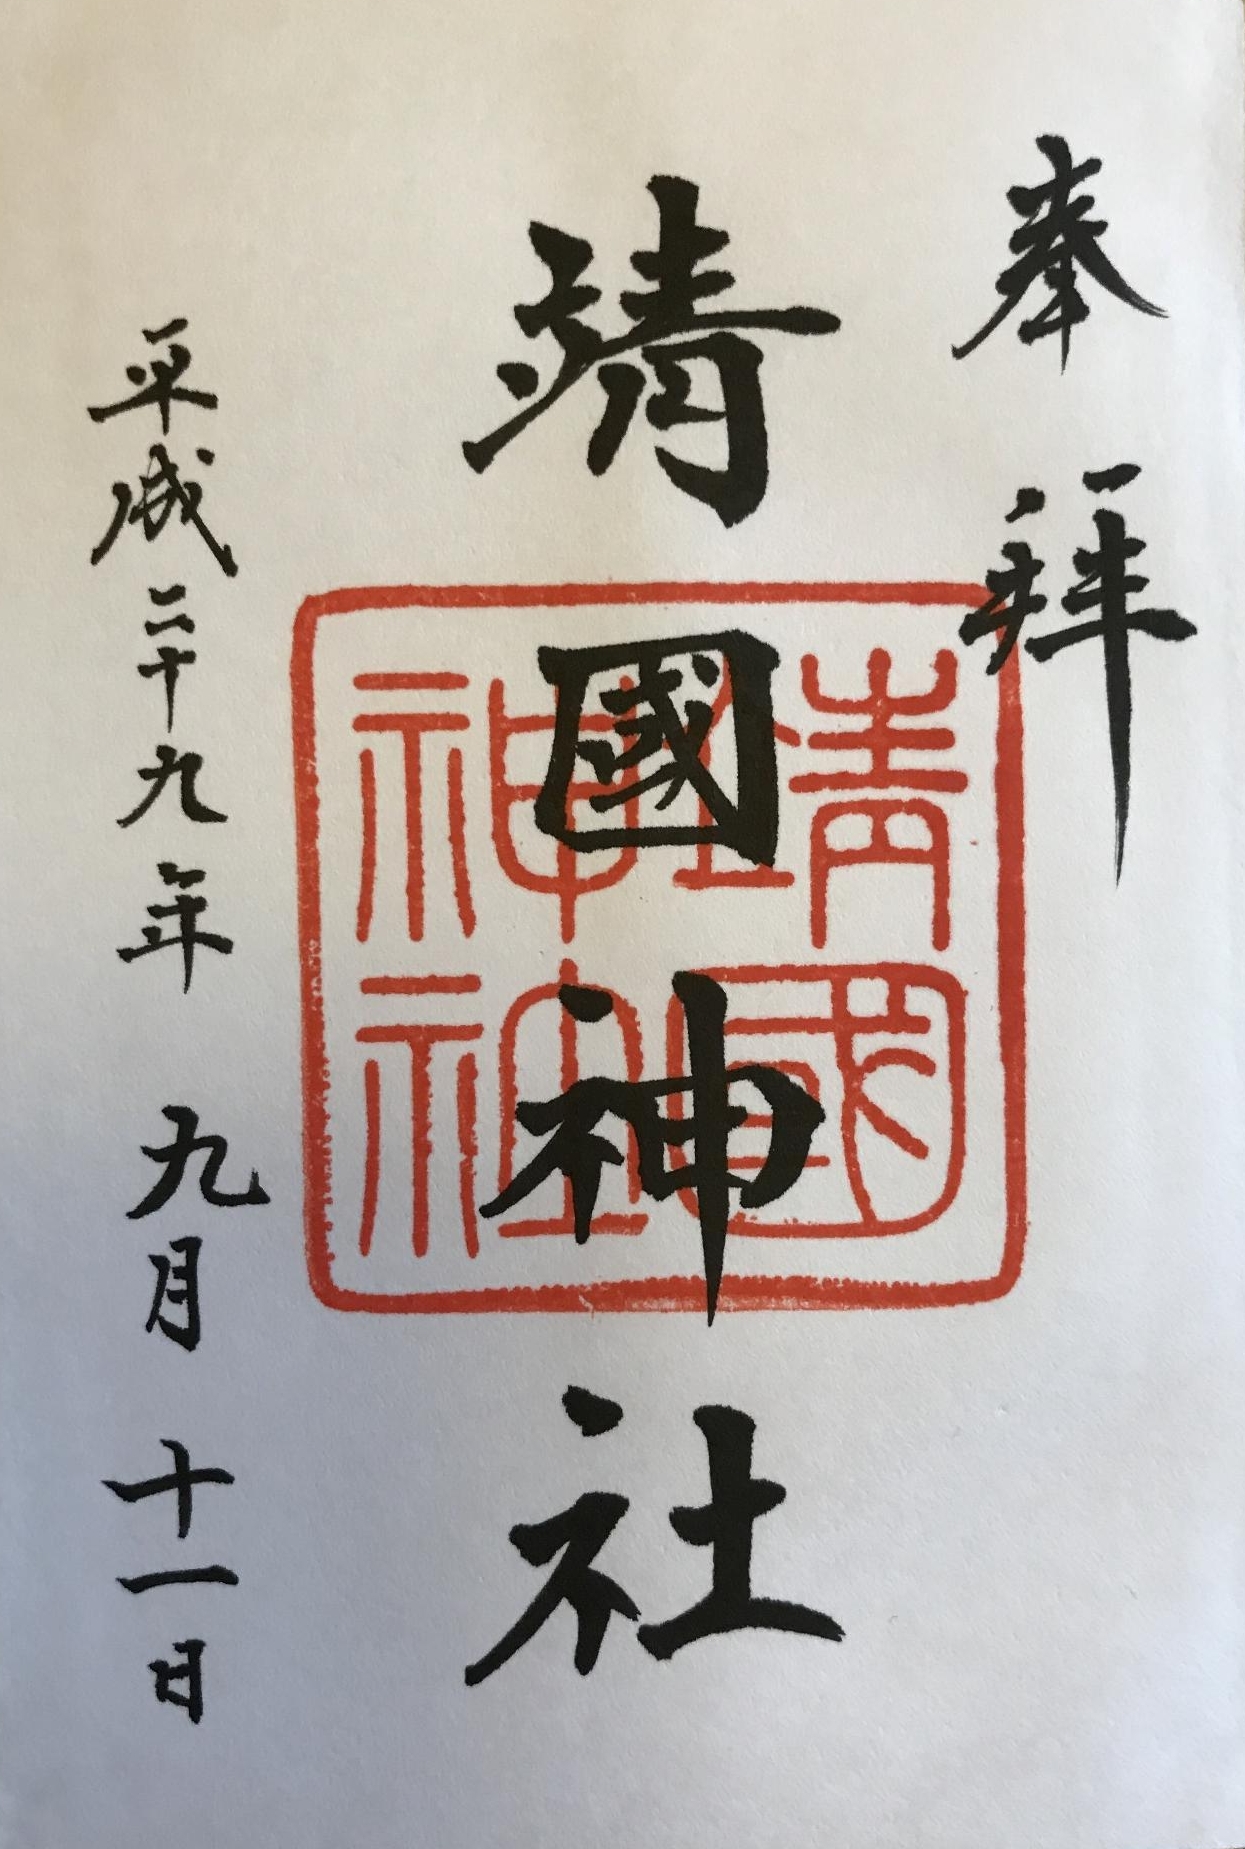 奉拝
靖國神社
靖國
神社
平成二十九年九月十一日